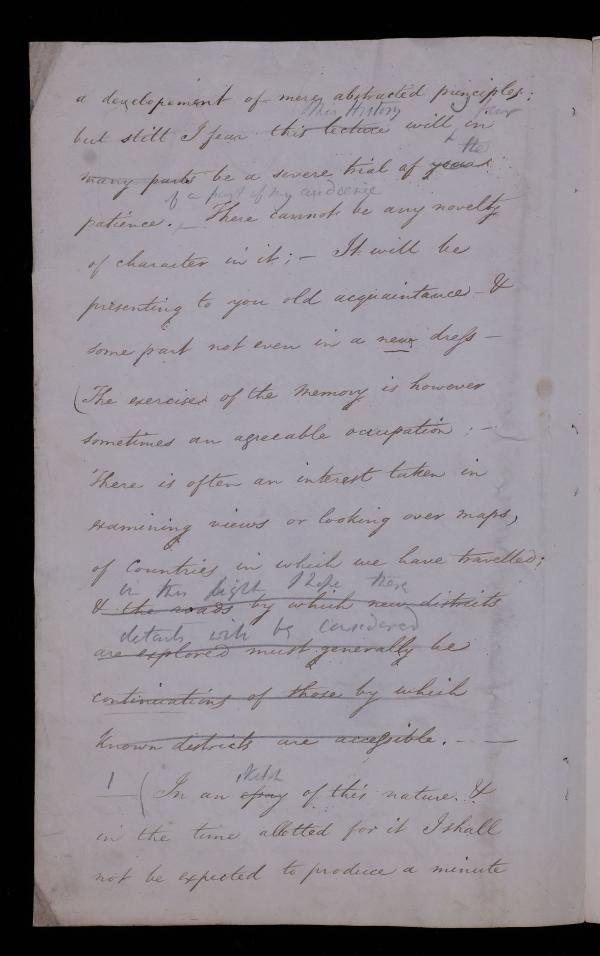 a developement of mere abstracted principles;
this History
but still I fear this lecture will in
the
many parts be a severe trial of your
of a part of my audience
patience. – There cannot be any novelty
of character in it; – It will be
presenting to you old acquaintance &
some part not even in a new dress –
(The exercise of the Memory is however
sometimes an agreeable occupation; –
There is often an interest taken in
examining views or looking over maps,
of Countries in which we have travelled;
in this light I hope these
& the roads by which new districts
details will be considered
are explored must generally be
continuations of those by which
known districts are accessible. – —
sketch
1 (In an essay of this nature. &
in the time allotted for it I shall
not be expected to produce a minute